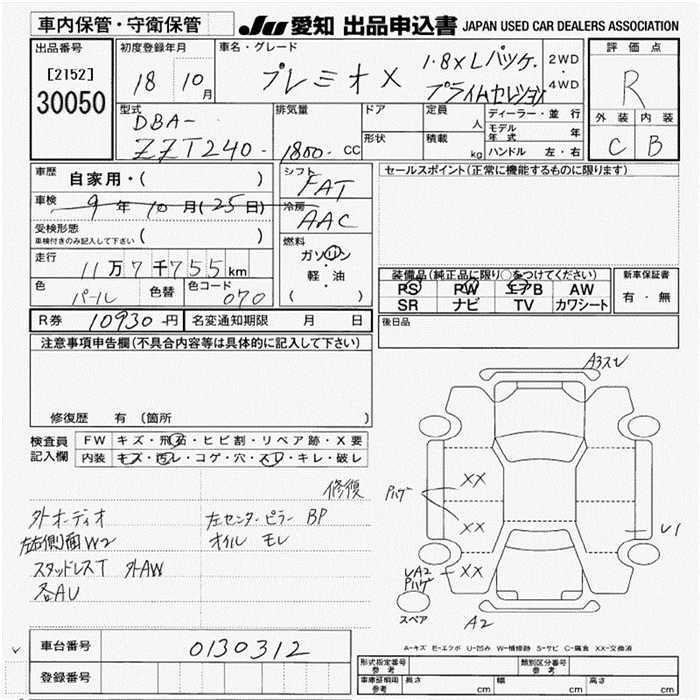 車内保管・守衛保管
JU 愛知 出品申込書 JAPAN USED CAR DEALERS ASSOCIATION
出品番号
[2152]
30050
初度登録年月
18 10月
車名・グレード
プレミオ X
1.8X Lパッケ.
プライムセレクション
2WD
・
4WD
評価点
R
外装 内装
C B
型式
DBA-
ZZT240-
排気量
1800 cc
ドア
形状
定員
人
積載
kg
ディーラー・並行
モデル年式 年
ハンドル 左・右
車歴 自家用・( )
車検 9年10月(25日)
受検形態
車検付きのみ記入して下さい ( )
走行
11万7千755km
色
パール
色替
色コード
070
シフト
FAT
冷房
AAC
燃料
ガソリン
・
軽・油
( )
セールスポイント(正常に機能するものに限ります)
装備品(純正品に限り○をつけてください)
PS PW エアB AW
SR ナビ TV カワシート
新車保証書
有・無
R券 10930円 名変通知期限 月 日
後日品
注意事項申告欄(不具合内容等は具体的に記入して下さい)
修復歴 有 (箇所
検査員
記入欄
FW キズ・飛石・ヒビ割・リペア跡・X要
内装 キズ・汚レ・コゲ・穴・スレ・キレ・破レ
修復
外オーディオ 左センターピラー BP
左右側面W2 オイル モレ
スタッドレスT 外AW
各AU
A3スレ
XX
ハゲ
XX
U1
UA2
ハゲ
XX
スペア
A2
A-キズ E-エクボ U-凹み W-補修跡 S-サビ C-腐食 XX-交換済
車台番号 0130312
登録番号
型式指定番号
参考
類別区分番号
参考
車庫証明用
参考
長さ cm 幅 cm 高さ cm